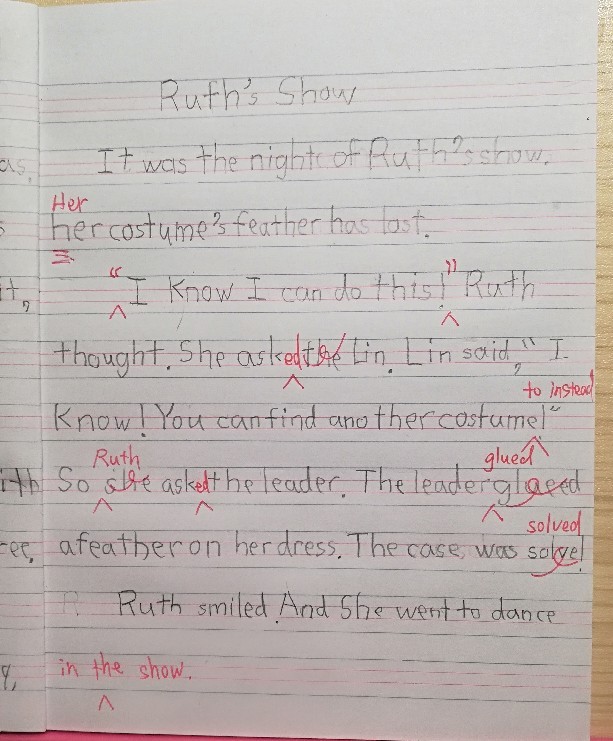 Ruth's Show
as, It was the night of Ruth's show.
Her
her costume's feather has lost.
it, "I Know I can do this!" Ruth
thought. She asked the Lin. Lin said, "I
to instead
Know! You can find another costume!"
Ruth glued
ith So she asked the leader. The leader glaeed
solved
ee, a feather on her dress. The case was solve!
Ruth smiled. And She went to dance
in the show.